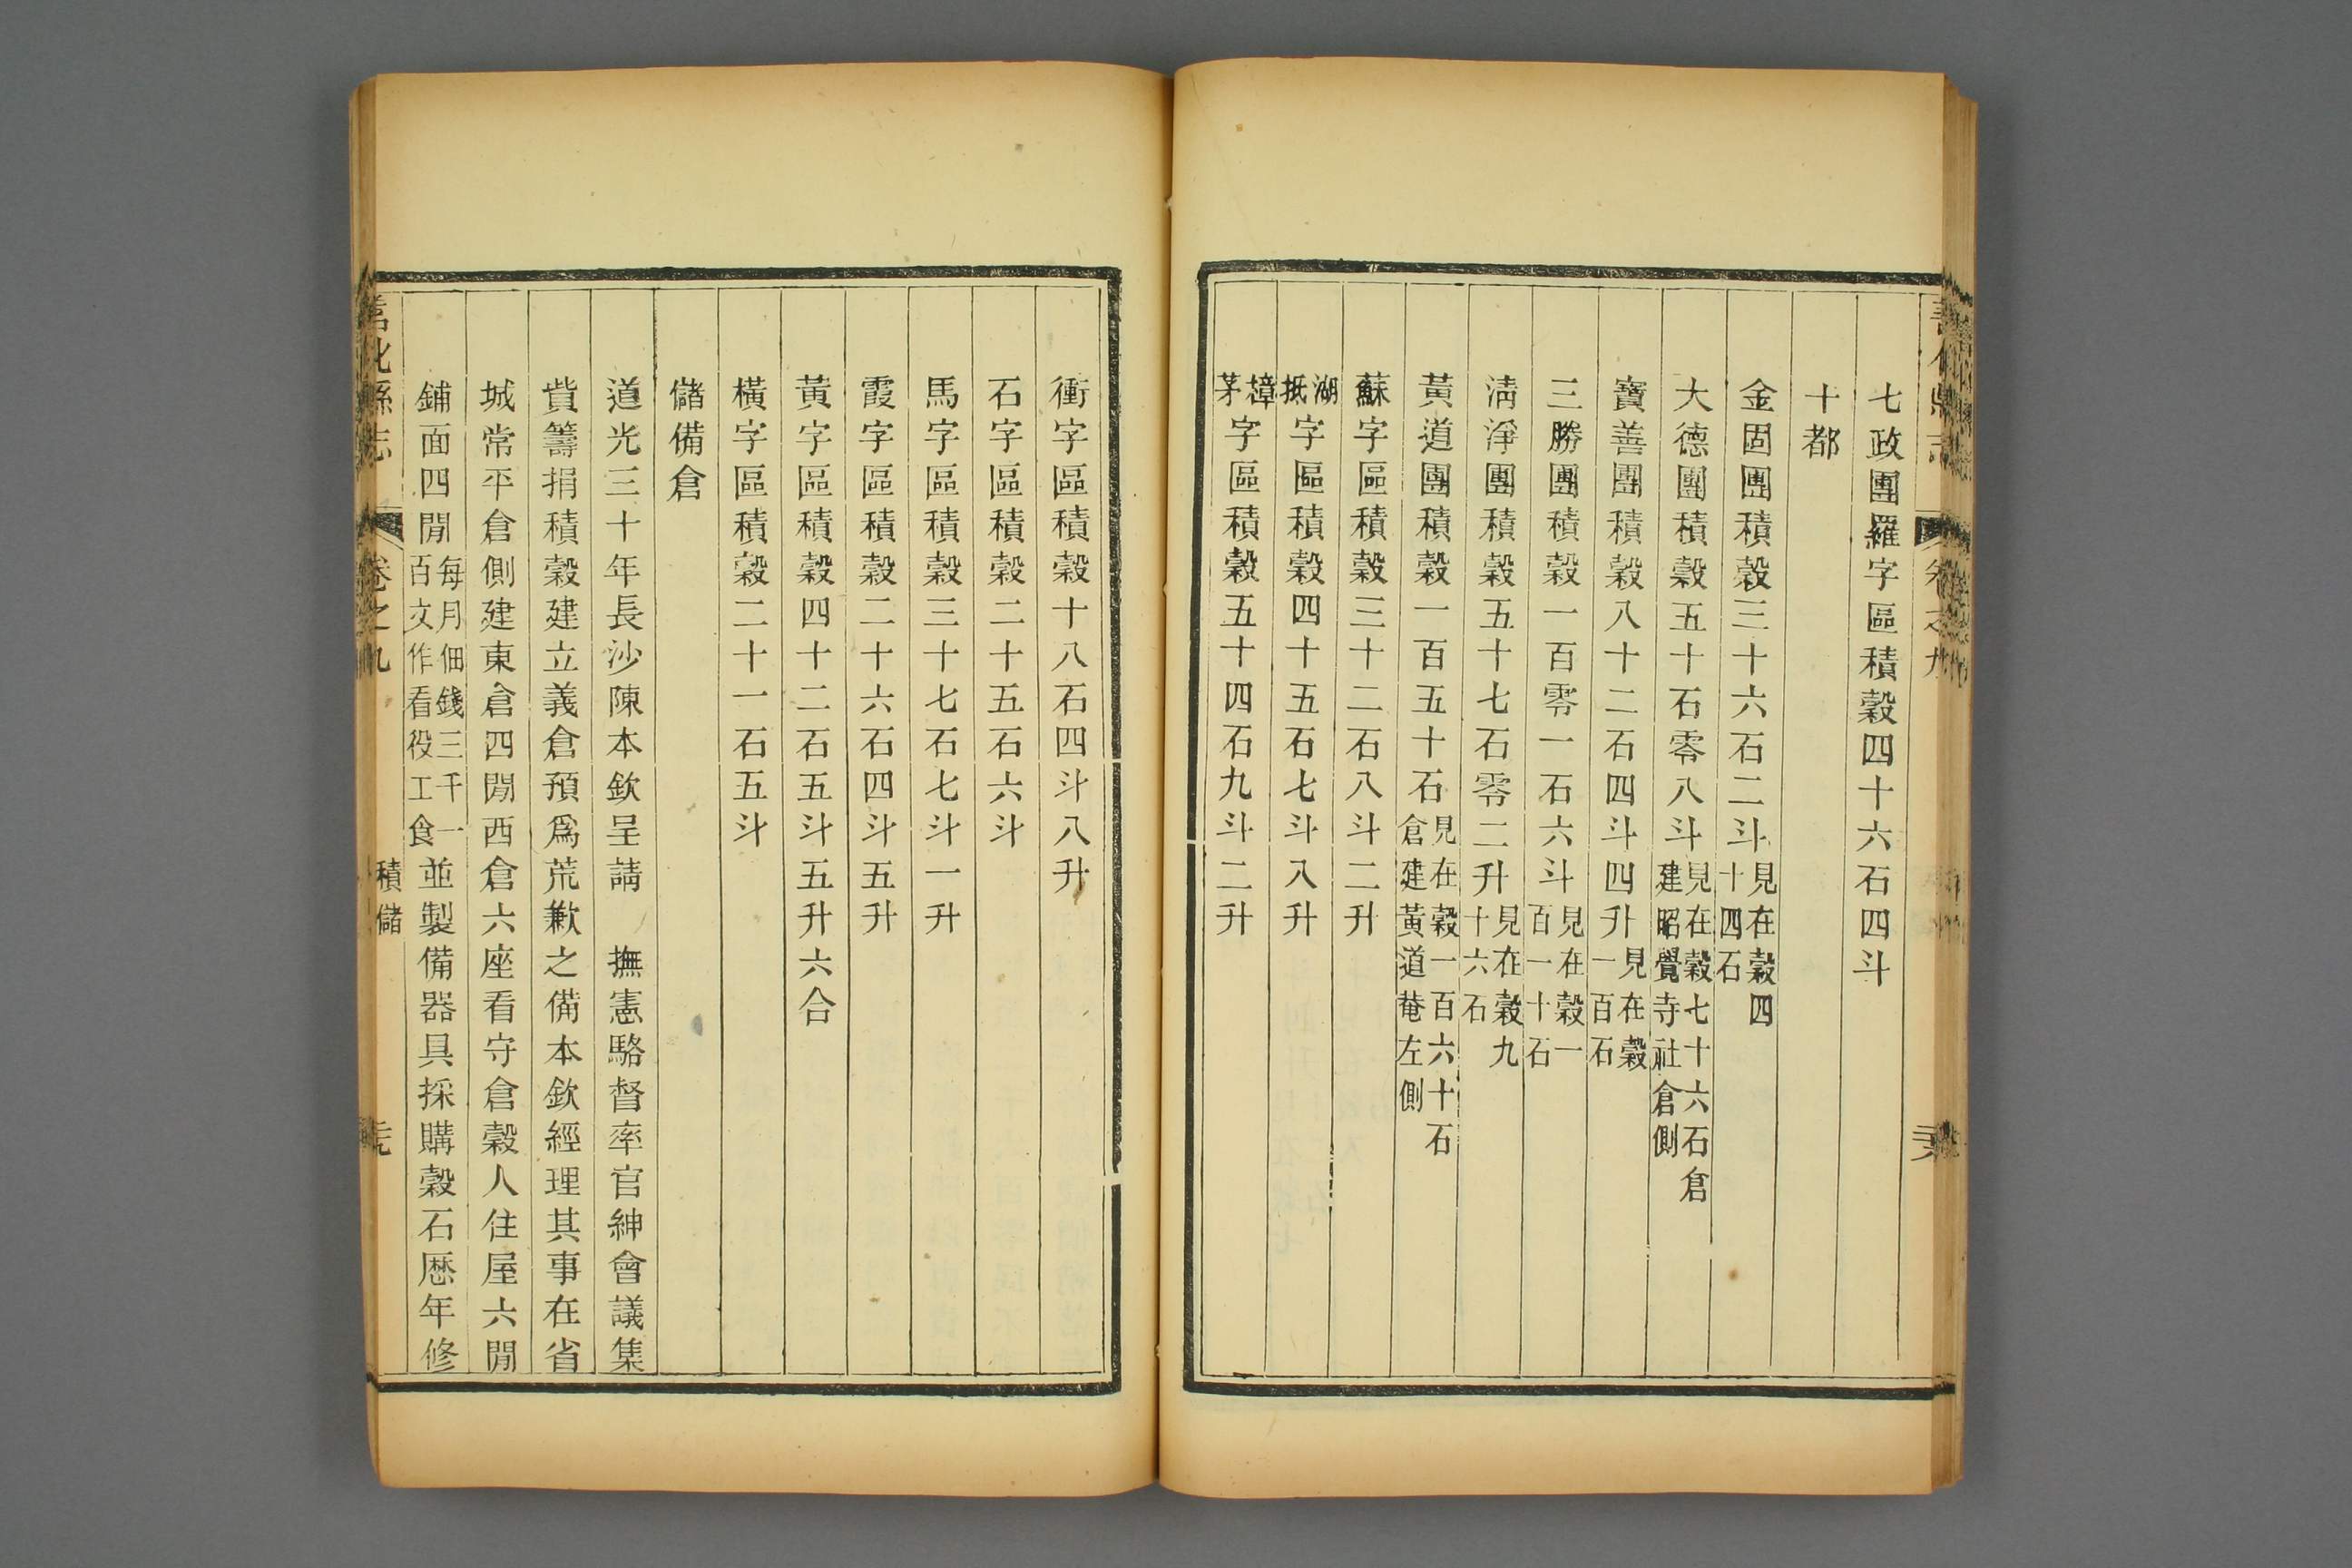 七政團羅字區積穀四十六石四斗
十都
金固團積穀三十六石二斗見在穀四十四石
大德團積穀五十石零八斗見在穀七十六石倉建昭覺寺社倉側
寶善團積穀八十二石四斗四升見在穀一百石
三勝團積穀一百零一石六斗見在穀一百一十石
淸淨團積穀五十七石零二升見在穀九十六石
黃道團積穀一百五十石見在穀一百六十石倉建黃道菴左側
蘇字區積穀三十二石八斗二升
湖抵字區積穀四十五石七斗八升
樟茅字區積穀五十四石九斗二升
衝字區積穀十八石四斗八升
石字區積穀二十五石六斗
馬字區積穀三十七石七斗一升
霞字區積穀二十六石四斗五升
黃字區積穀四十二石五斗五升六合
橫字區積穀二十一石五斗
儲備倉
道光三十年長沙陳本欽呈請 撫憲駱督率官紳會議集
貲籌捐積穀建立義倉預爲荒歉之備本欽經理其事在省
城常平倉側建東倉四閒西倉六座看守倉穀人住屋六閒
鋪面四閒每月佃錢三千一百文作看役工食並製備器具採購穀石歷年修
善化縣志 卷之九 積儲